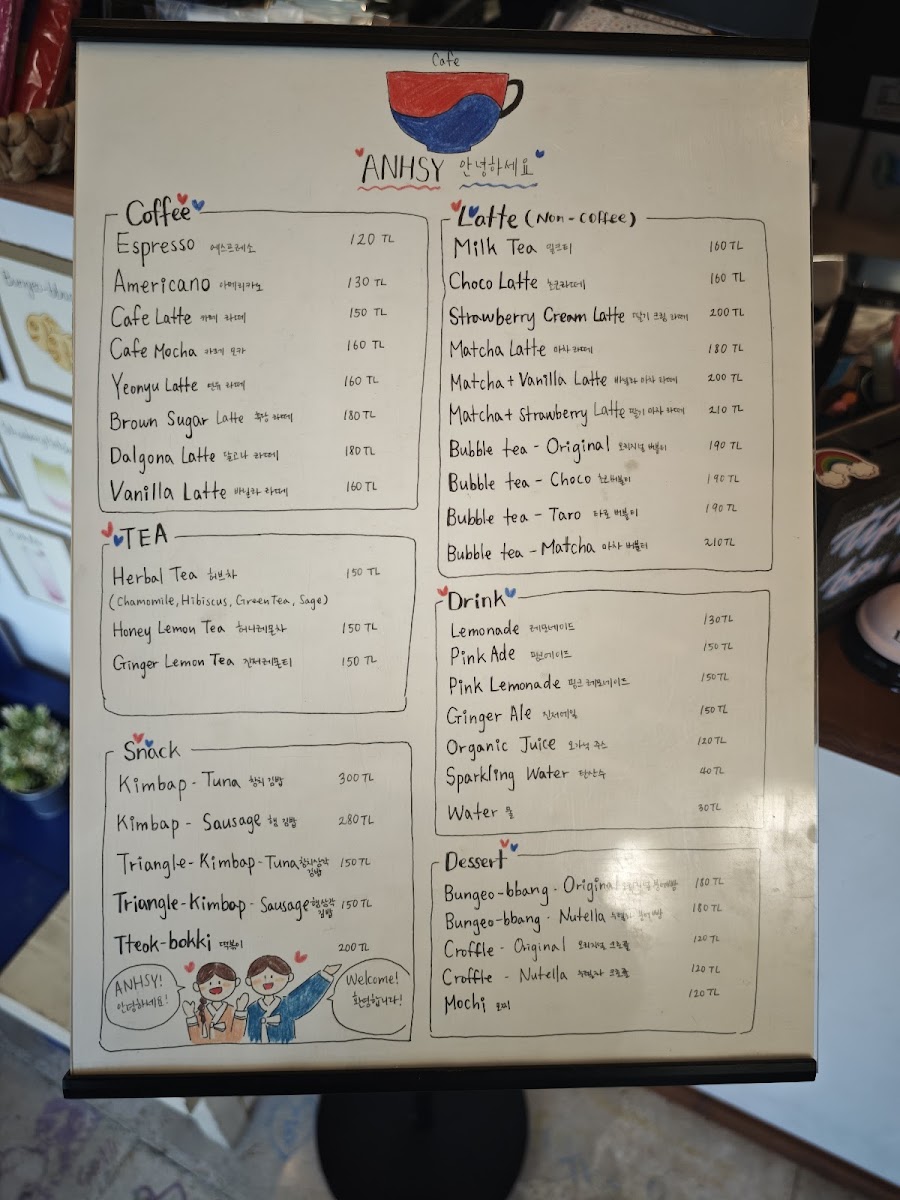 Cafe
ANHSY 안녕하세요
Coffee
Espresso 에스프레소 120 TL
Americano 아메리카노 130 TL
Cafe Latte 카페 라떼 150 TL
Cafe Mocha 카페 모카 160 TL
Yeonyu Latte 연유 라떼 160 TL
Brown Sugar Latte 흑당 라떼 180 TL
Dalgona Latte 달고나 라떼 180 TL
Vanilla Latte 바닐라 라떼 160 TL
TEA
Herbal Tea 허브차 150 TL
(Chamomile, Hibiscus, Green Tea, Sage)
Honey Lemon Tea 허니레몬차 150 TL
Ginger Lemon Tea 진저레몬티 150 TL
Snack
Kimbap - Tuna 참치 김밥 300 TL
Kimbap - Sausage 햄 김밥 280 TL
Triangle-Kimbap-Tuna 참치삼각 김밥 150 TL
Triangle-Kimbap-Sausage 햄삼각 김밥 150 TL
Tteok-bokki 떡볶이 200 TL
ANHSY!
안녕하세요!
Welcome!
환영합니다!
Latte (Non-Coffee)
Milk Tea 밀크티 160 TL
Choco Latte 초코라떼 160 TL
Strawberry Cream Latte 딸기 크림 라떼 200 TL
Matcha Latte 마차 라떼 180 TL
Matcha + Vanilla Latte 바닐라 마차 라떼 200 TL
Matcha + Strawberry Latte 딸기 마차 라떼 210 TL
Bubble tea - Original 오리지널 버블티 190 TL
Bubble tea - Choco 초코버블티 190 TL
Bubble tea - Taro 타로 버블티 190 TL
Bubble tea - Matcha 마차 버블티 210 TL
Drink
Lemonade 레모네이드 130 TL
Pink Ade 핑크에이드 150 TL
Pink Lemonade 핑크 레모네이드 150 TL
Ginger Ale 진저에일 150 TL
Organic Juice 오가닉 주스 120 TL
Sparkling Water 탄산수 40 TL
Water 물 30 TL
Dessert
Bungeo-bbang - Original 오리지널 붕어빵 180 TL
Bungeo-bbang - Nutella 누텔라 붕어빵 180 TL
Croffle - Original 오리지널 크로플 120 TL
Croffle - Nutella 누텔라 크로플 120 TL
Mochi 모찌 120 TL